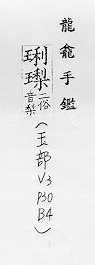 龍龕手鑑
琍瓈二俗音梨
(玉部V3P30B4)